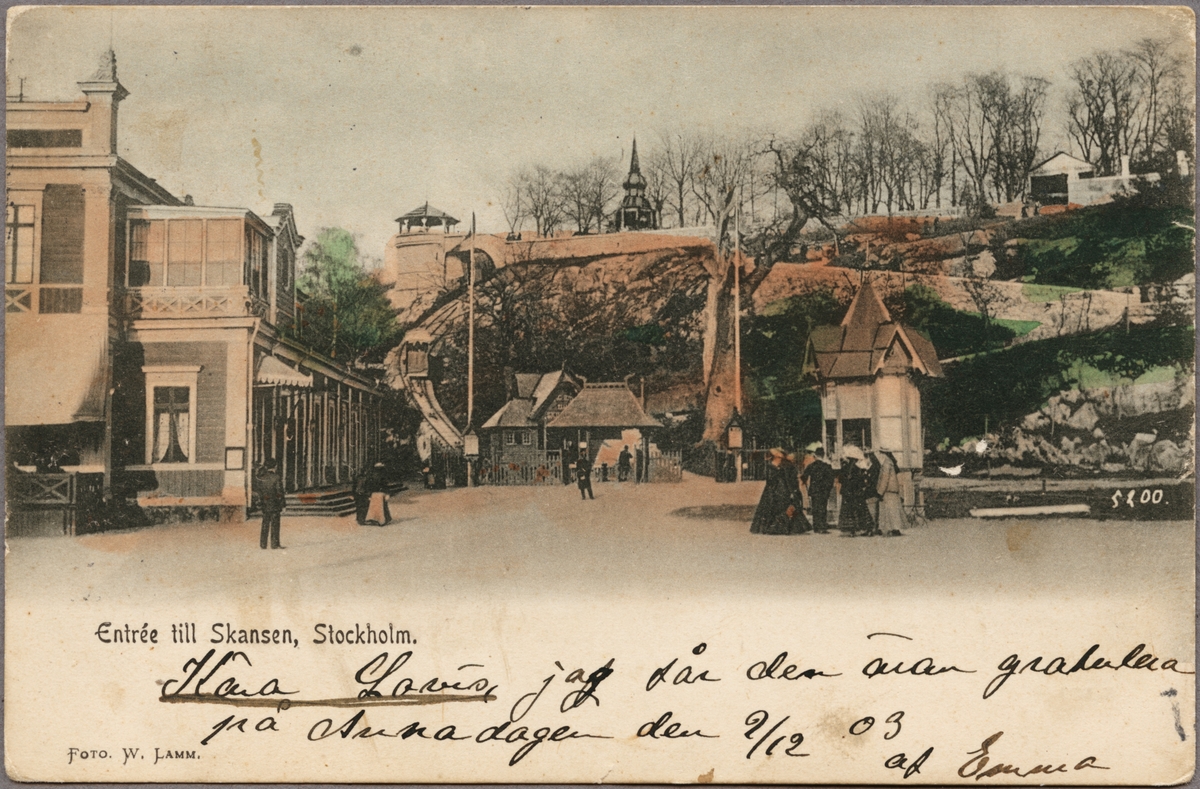 5200.
Entrée till Skansen, Stockholm.
Kära Lovis, jag får den äran gratulera
på Annadagen den 9/12 03
af Emma
Foto. W. Lamm.